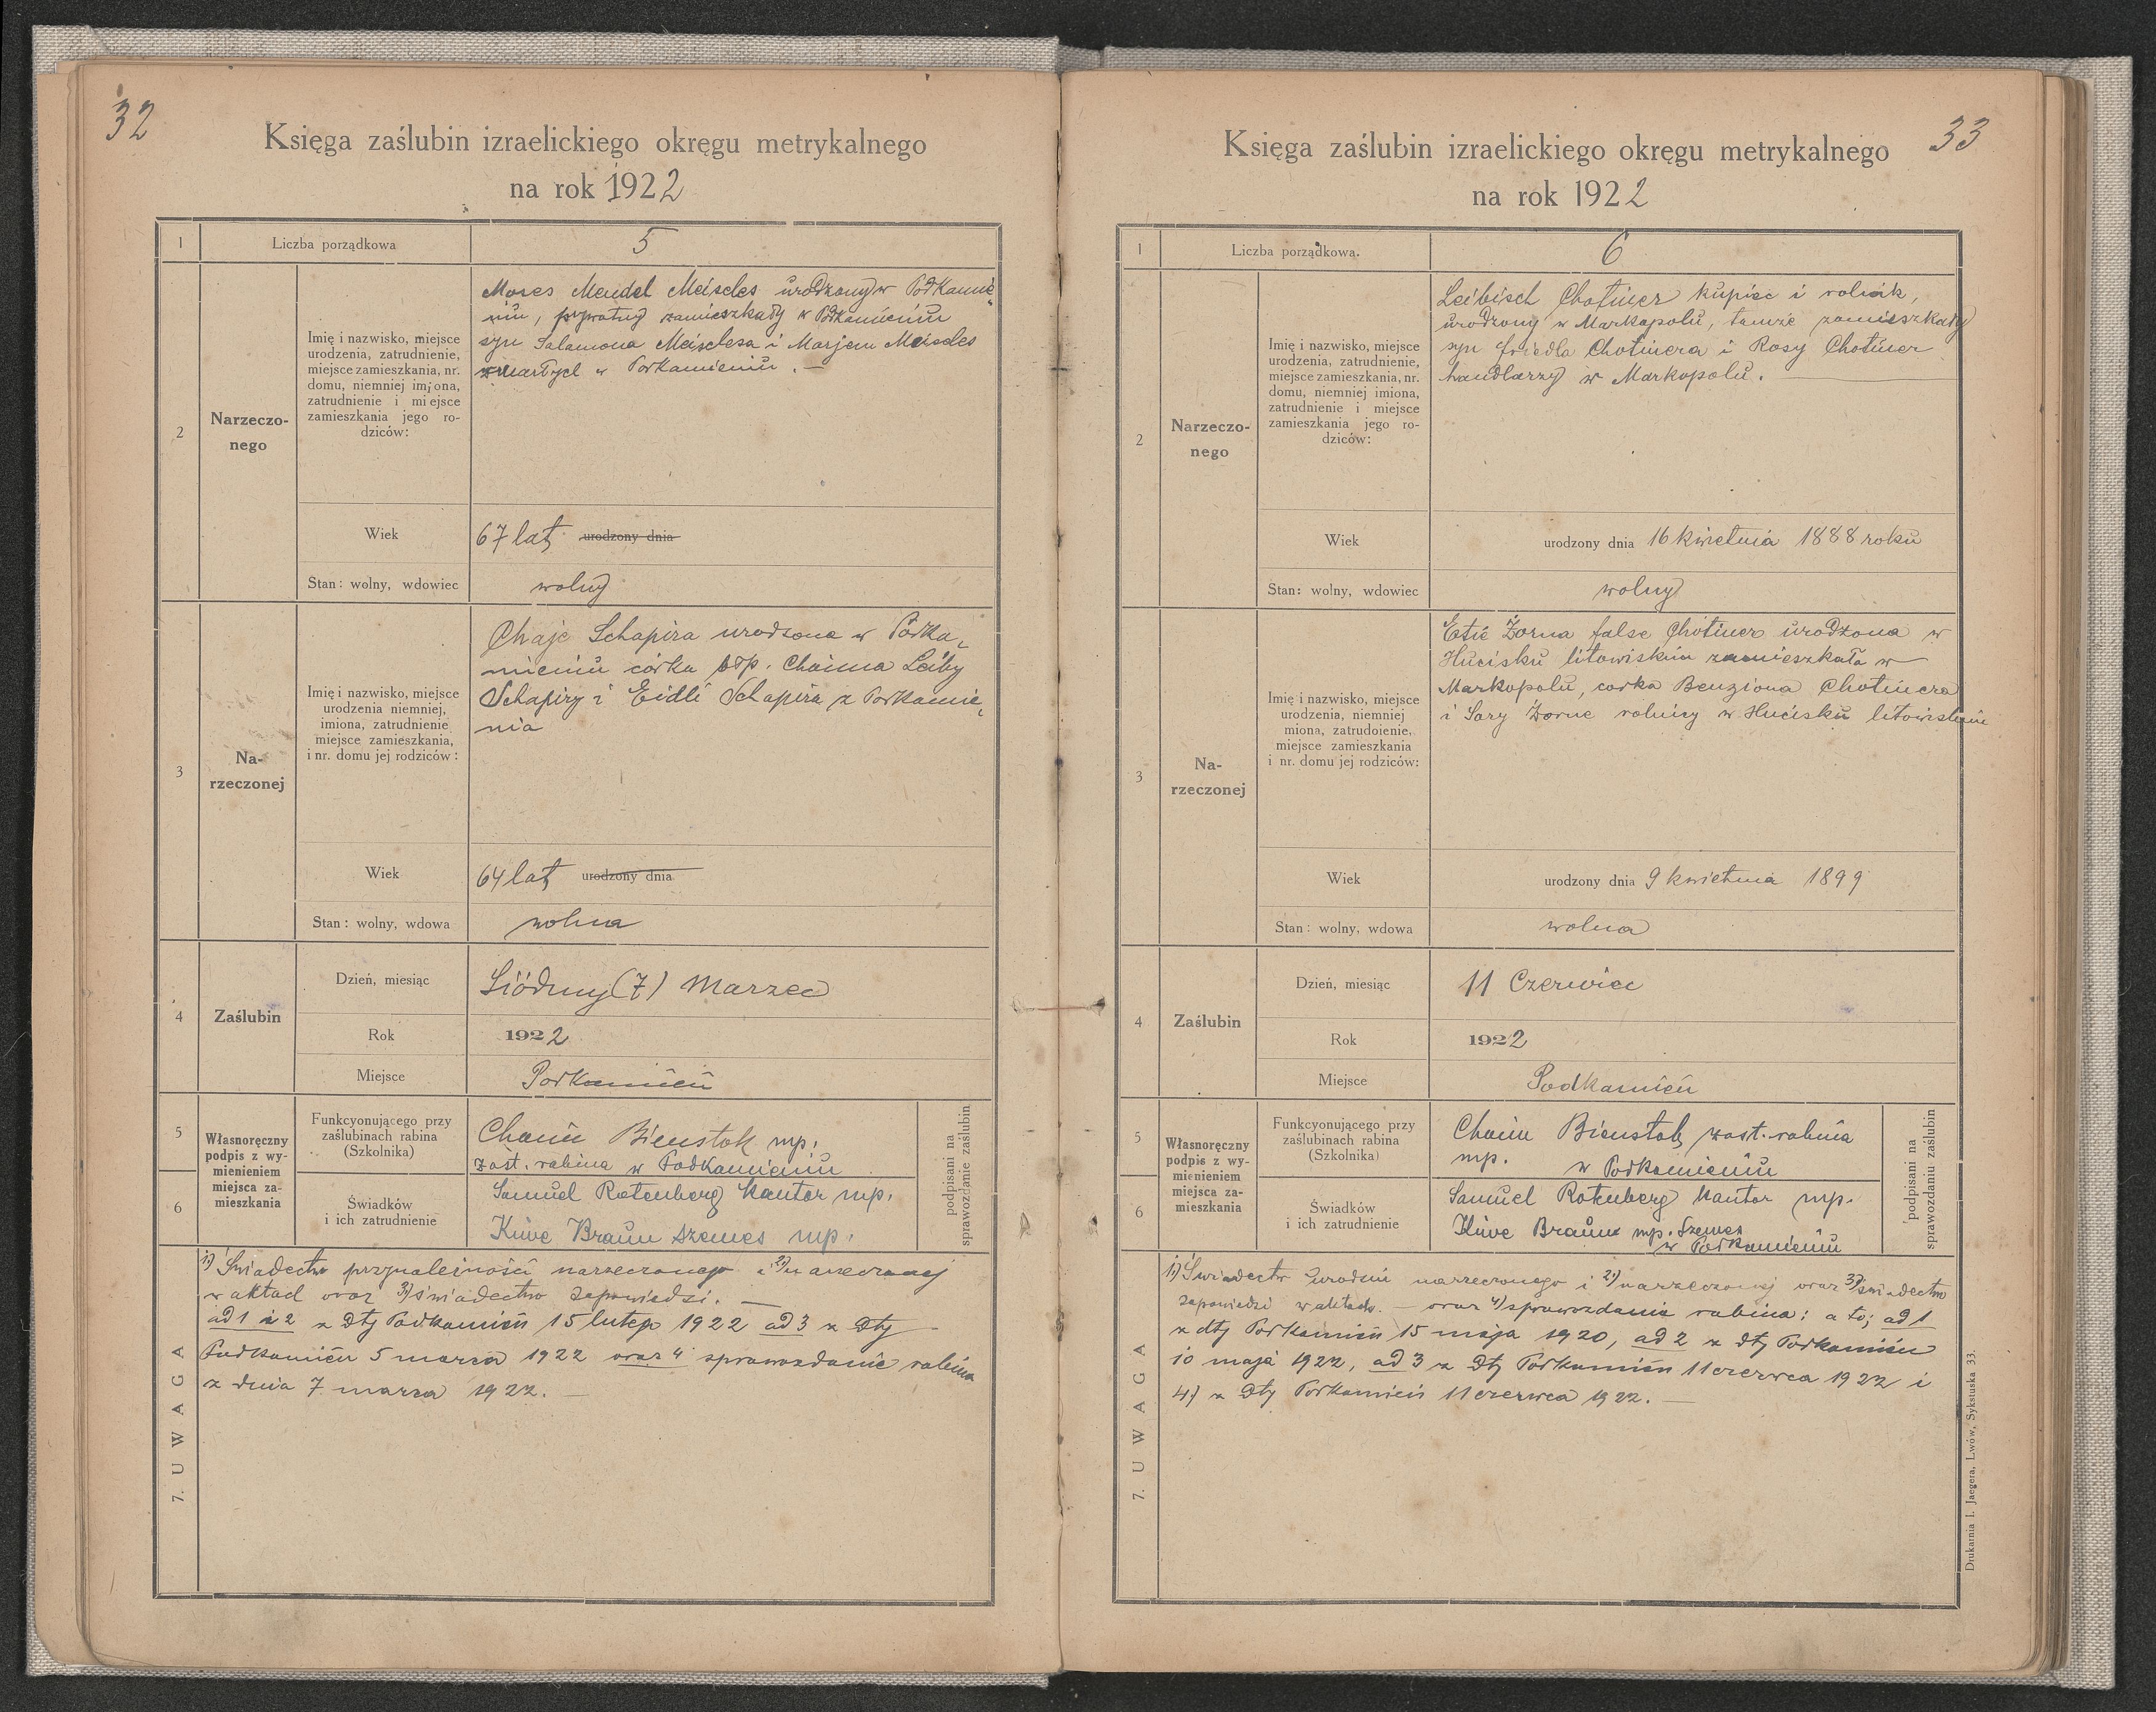 32
Księga zaślubin izraelickiego okręgu metrykalnego
na rok 1922
1
Liczba porządkowa
5
2
Narzeczo-
nego
Imię i nazwisko, miejsce
urodzenia, zatrudnienie,
miejsce zamieszkania, nr.
domu, niemniej imiona,
zatrudnienie i miejsce
zamieszkania jego ro-
dziców:
Moses Mendel Meiseles urodzony w Podkamie
niu, prywatny zamieszkały w Podkamieniu
syn Salamona Meiselesa i Marjem Meiseles
zmarłych w Podkamieniu. —
Wiek
67 lat urodzony dnia
Stan: wolny, wdowiec
wolny
3
Na-
rzeczonej
Imię i nazwisko, miejsce
urodzenia niemniej,
imiona, zatrudnienie
miejsce zamieszkania,
i nr. domu jej rodziców:
Chaje Schapira urodzona w Podka-
mieniu córka Chaima Leiby
Schapiry i Eidli Schapira z Podkamie-
nia
Wiek
64 lat urodzony dnia
Stan: wolny, wdowa
wolna
4
Zaślubin
Dzień, miesiąc
Siódmy (7) Marzec
Rok
1922
Miejsce
Podkamień
5
6
Własnoręczny
podpis z wy-
mienieniem
miejsca za-
mieszkania
Funkcyonującego przy
zaślubinach rabina
(Szkolnika)
Chaim Bienstok mp.
zast. rabina w Podkamieniu
Świadków
i ich zatrudnienie
Samuel Rotenberg kantor mp.
Kiwe Braun szames mp.
podpisani na
sprawozdanie zaślubin
7. UWAGA
1) Świadectwo przynależności narzeczonego i 2) narzeczonej
w aktach oraz 3) świadectwo zapowiedzi. —
ad 1 i 2 z dty Podkamień 15 lutego 1922 ad 3 z dty
Podkamień 5 marca 1922 oraz 4 sprawozdanie rabina
z dnia 7 marca 1922. —
33
Księga zaślubin izraelickiego okręgu metrykalnego
na rok 1922
1
Liczba porządkowa.
6
2
Narzeczo-
nego
Imię i nazwisko, miejsce
urodzenia, zatrudnienie,
miejsce zamieszkania, nr.
domu, niemniej imiona,
zatrudnienie i miejsce
zamieszkania jego ro-
dziców:
Leibisch Chotiner kupiec i rolnik,
urodzony w Markopolu, tamże zamieszkały
syn Friedla Chotinera i Rosy Chotiner
handlarzy w Markopolu. —
Wiek
urodzony dnia 16 kwietnia 1888 roku
Stan: wolny, wdowiec
wolny
3
Na-
rzeczonej
Imię i nazwisko, miejsce
urodzenia, niemniej
miona, zatrudoienie,
miejsce zamieszkania
i nr. domu jej rodziców:
Etie Żorna false Chotiner urodzona w
Hucisku litowiskim zamieszkała w
Markopolu, corka Benziona Chotinera
i Sary Żorne rolnicy w Hucisku litowiskim
Wiek
urodzony dnia 9 kwietnia 1899
Stan: wolny, wdowa
wolna
4
Zaślubin
Dzień, miesiąc
11 Czerwiec
Rok
1922
Miejsce
Podkamień
5
6
Własnoręczny
podpis z wy-
mienieniem
miejsca za-
mieszkania
Funkcyonującego przy
zaślubinach rabina
(Szkolnika)
Chaim Bienstok zast. rabina
mp. w Podkamieniu
Świadków
i ich zatrudnienie
Samuel Rotenberg kantor mp.
Kiwe Braun mp. Szames
w Podkamieniu
podpisani na
sprawozdaniu zaślubin
7. UWAGA
1) Świadectw urodzin narzeczonego i 2) narzeczonej oraz 3) świadectw
zapowiedzi w aktach. — oraz 4) sprawozdania rabina: a to; ad 1
z dty Podkamień 15 maja 1920, ad 2 z dty Podkamień
10 maja 1922, ad 3 z dty Podkamień 11 czerwca 1922 i
4) z dty Podkamień 11 czerwca 1922. —
Drukarnia I. Jaegera, Lwów, Sykstuska 33.